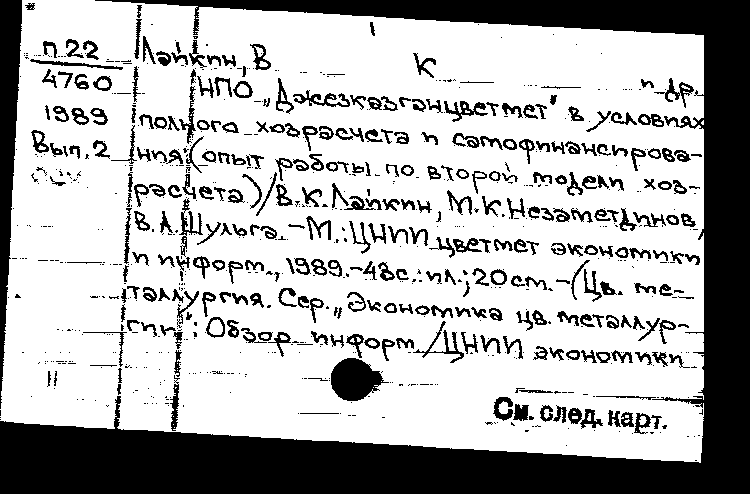 п 22
4760
1989
Вып. 2
Лайкин, В К
и др.
НПО „Джезказганцветмет" в условиях
полного хозрасчета и самофинансирова-
ния: (опыт работы по второй модели хоз-
расчета) / В.К. Лайкин, М.К. Незаметдинов,
В.А. Шульга. – М.: ЦНИИцветмет экономики
и информ., 1989. – 48 с.: ил.; 20 см. – (Цв. ме-
таллургия. Сер. „Экономика цв. металлур-
гии": Обзор. информ. / ЦНИИ экономики
См. след. карт.